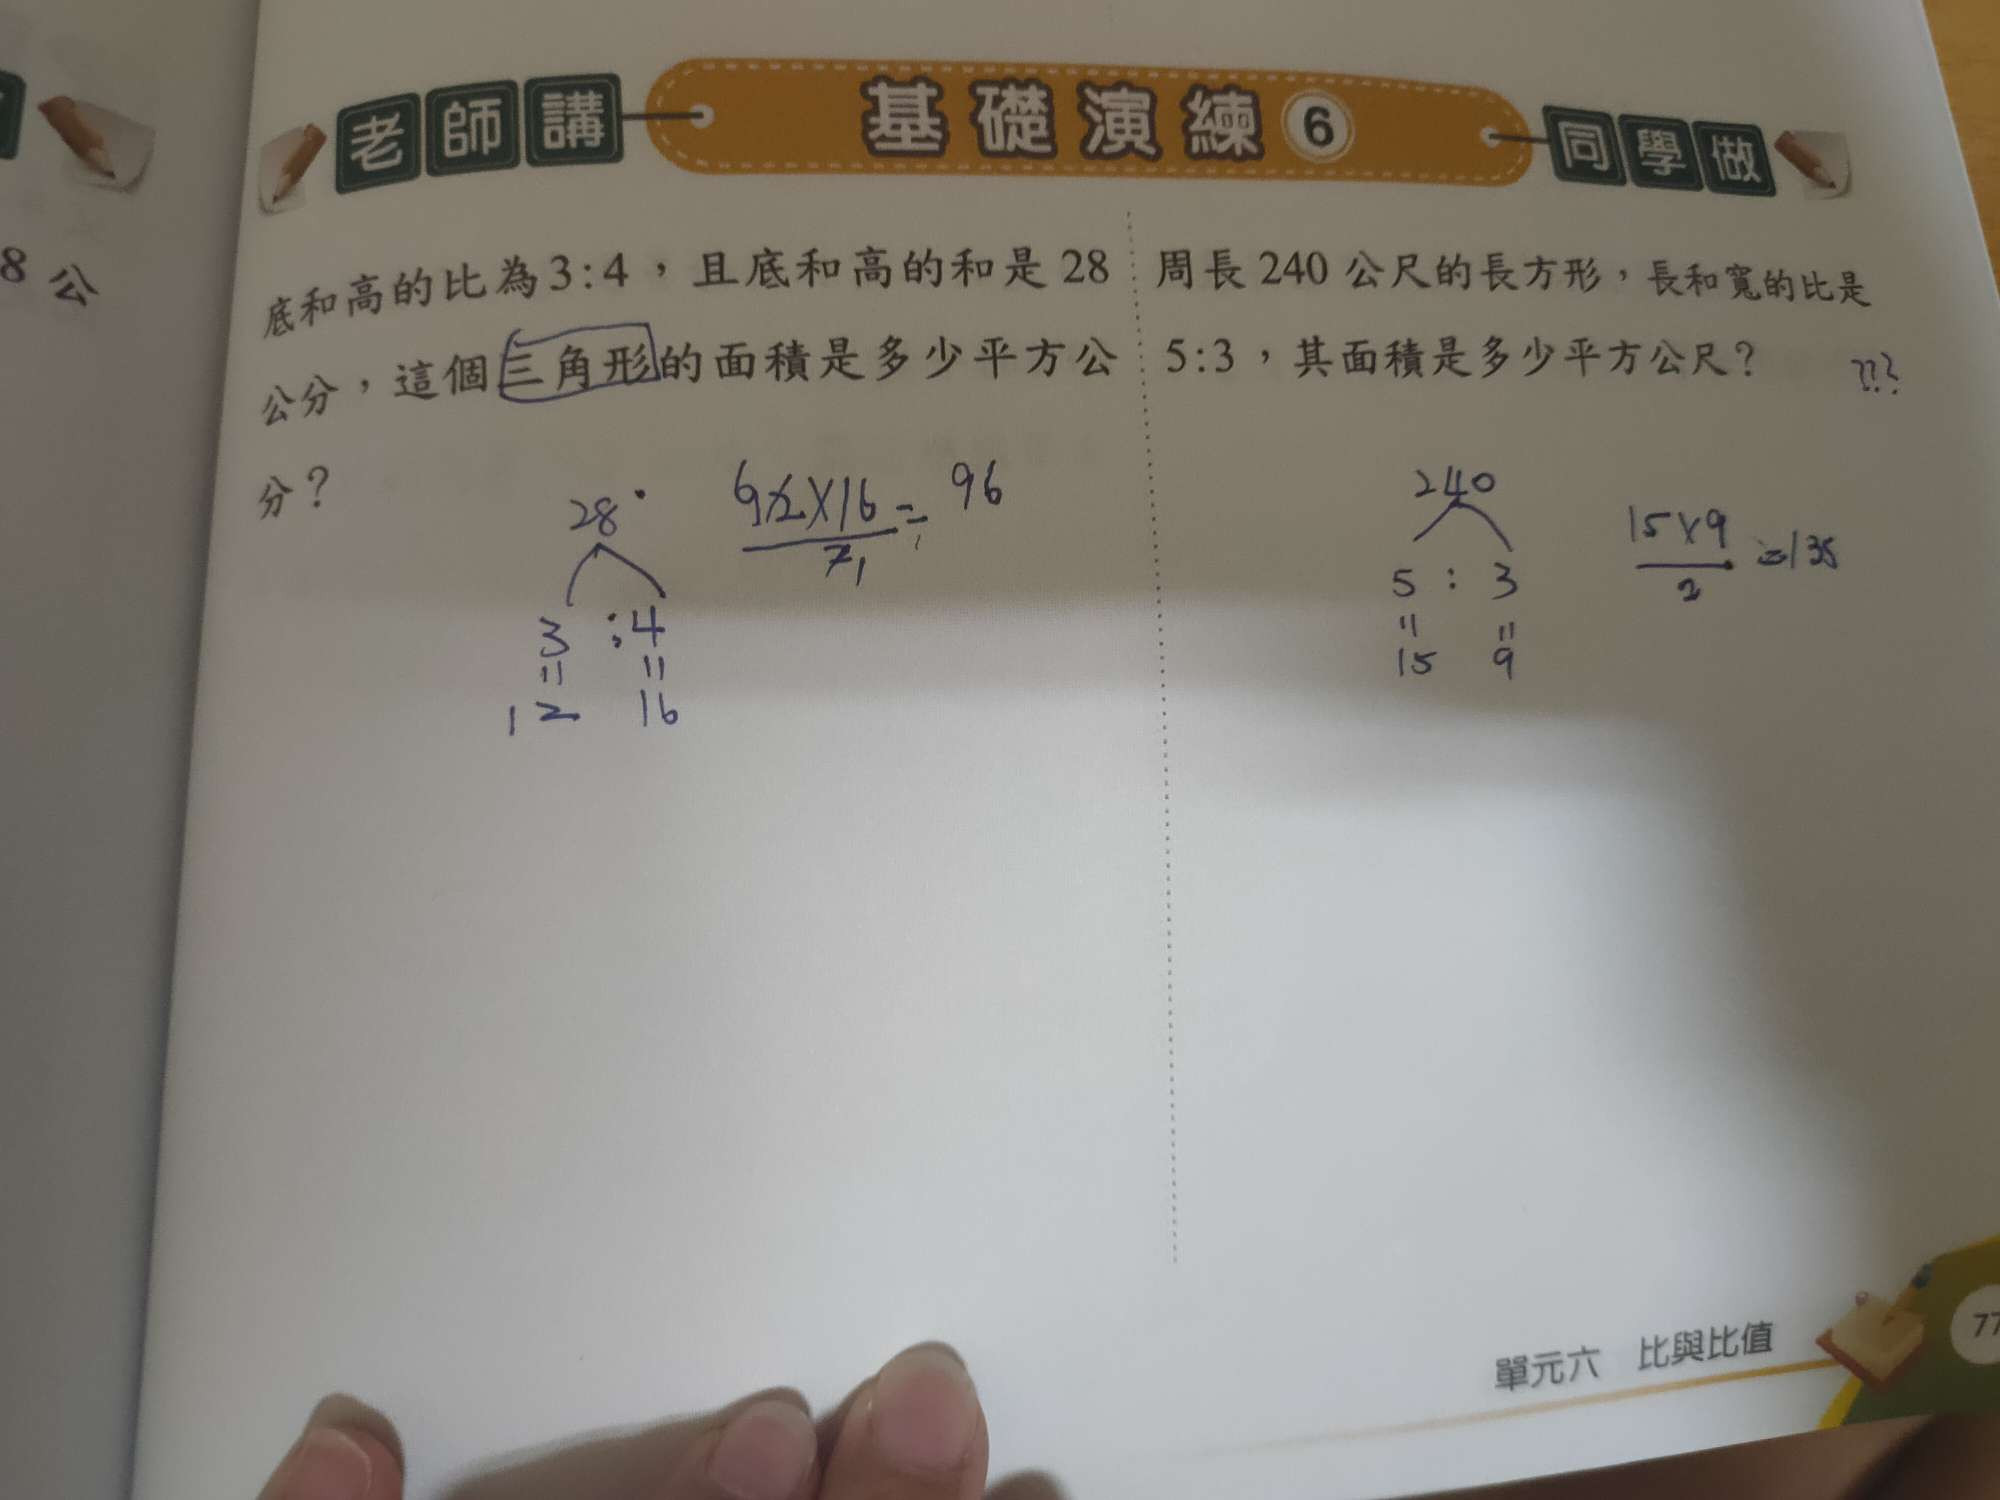 8 公
老師講 基礎演練 6 同學做
底和高的比為3:4，且底和高的和是28
公分，這個三角形的面積是多少平方公
分？
28
3 : 4
= =
12 16
= 96
周長240公尺的長方形，長和寬的比是
5:3，其面積是多少平方公尺？ ???
240
5 : 3
= =
15 9
15×9
2
=135
單元六 比與比值
77